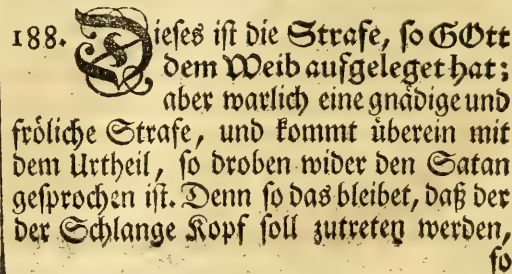 188. Dieses ist die Strafe, so GOtt
dem Weib aufgeleget hat;
aber warlich eine gnädige und
fröliche Strafe, und kommt überein mit
dem Urtheil, so droben wider den Satan
gesprochen ist. Denn so das bleibet, daß der
der Schlange Kopf soll zutreten werden,
so